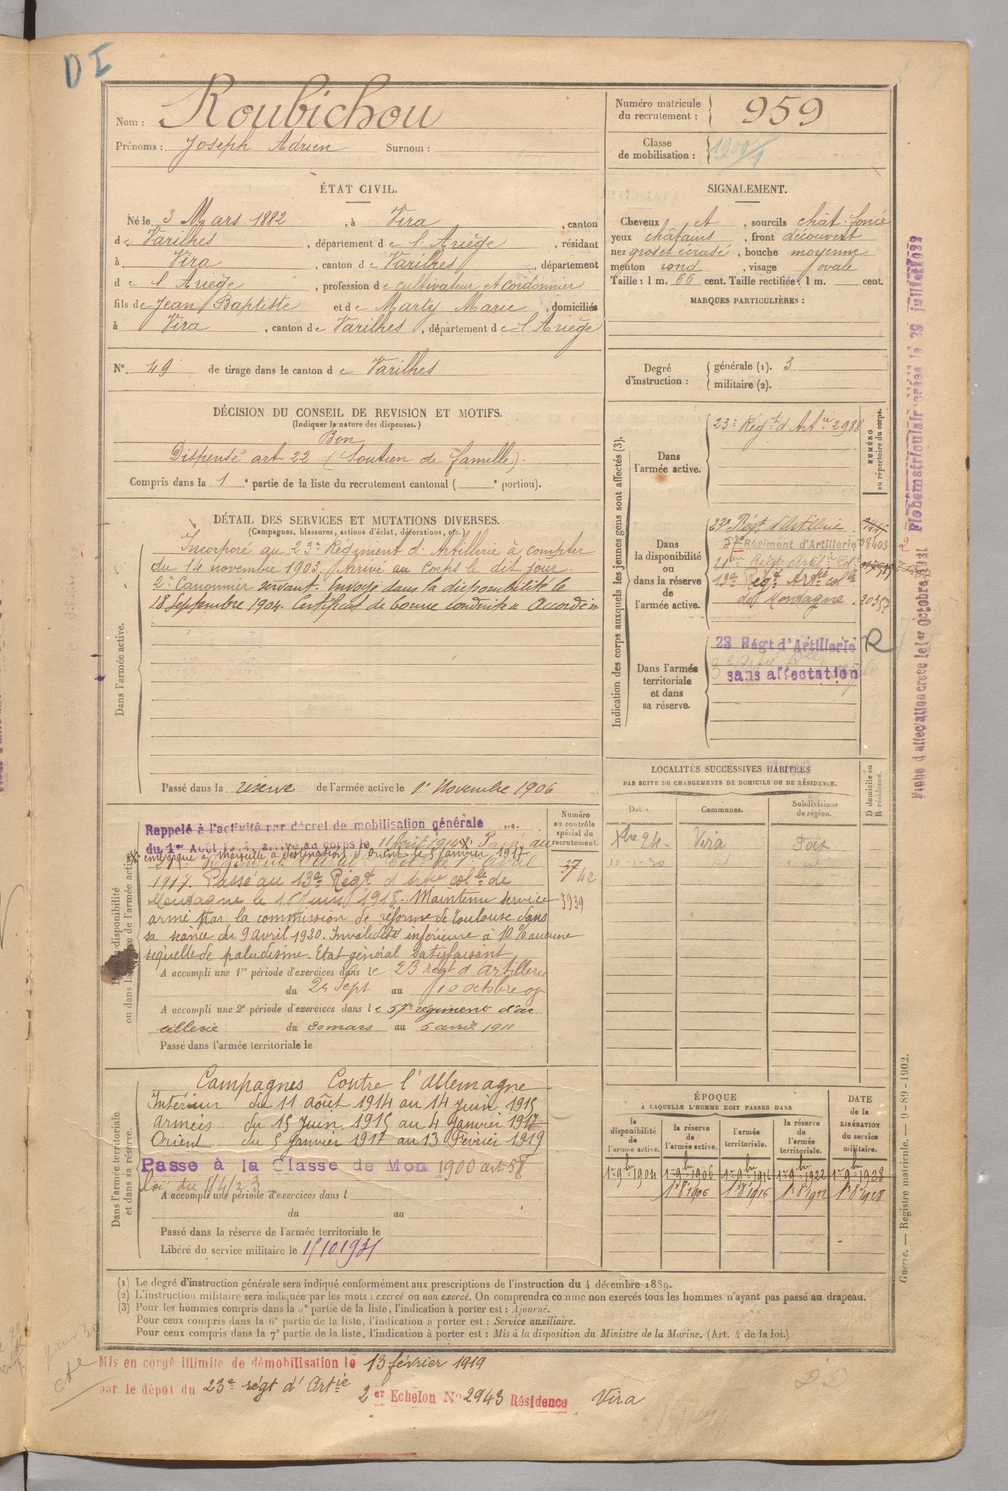 D I
Nom : Roubichou
Prénoms : Joseph Adrien Surnom :
Numéro matricule du recrutement : 959
Classe de mobilisation : 1900
ÉTAT CIVIL.
Né le 3 Mars 1882, à Vira, canton
de Varilhes, département de l'Ariège, résidant
à Vira, canton de Varilhes, département
de l'Ariège, profession de cultivateur et cordonnier
fils de Jean Baptiste et de Marty Marie, domiciliés
à Vira, canton de Varilhes, département de l'Ariège
N° 49 de tirage dans le canton de Varilhes
SIGNALEMENT.
Cheveux et, sourcils chât. foncé
yeux châtains, front découvert
nez gros et écrasé, bouche moyenne
menton rond, visage ovale
Taille : 1 m. 66 cent. Taille rectifiée : 1 m. cent.
MARQUES PARTICULIÈRES :
Degré d'instruction : générale (1). 3
militaire (2).
DÉCISION DU CONSEIL DE REVISION ET MOTIFS.
(Indiquer la nature des dispenses.)
Bon
Dispensé art 22 (Soutien de famille).
Compris dans la 1e partie de la liste du recrutement cantonal (e portion).
DÉTAIL DES SERVICES ET MUTATIONS DIVERSES.
(Campagnes, blessures, actions d'éclat, décorations, etc.)
Dans l'armée active.
Incorporé au 23e Régiment d'Artillerie à compter
du 14 novembre 1903. Arrivé au Corps le dit jour.
2e Canonnier servant. Envoyé dans la disponibilité le
18 septembre 1904. Certificat de bonne conduite "Accordé"
Passé dans la réserve de l'armée active le 1er Novembre 1906
Indication des corps auxquels les jeunes gens sont affectés (3).
NUMÉRO au répertoire du corps.
Dans l'armée active.
23e Régt d'Artie 2988
Dans la disponibilité ou dans la réserve de l'armée active.
23e Régt d'Artillerie
57e Régiment d'Artillerie 08403
13e Régt Artie colle
de Montagne. 20357
Dans l'armée territoriale et dans sa réserve.
23 Régt d'Artillerie
sans affectation
R
LOCALITÉS SUCCESSIVES HABITÉES
PAR SUITE DE CHANGEMENTS DE DOMICILE OU DE RÉSIDENCE.
Dates. Communes. Subdivisions de région. D domicile ou R résidence.
Xbre 24. Vira Foix
10-1-30
Dans la disponibilité ou dans la réserve de l'armée active.
Numéro au contrôle spécial du recrutement.
37
42
3939
Rappelé à l'activité par décret de mobilisation générale
du 1er Août 1914, arrivé au corps le 11 Août 1914. Passé au
embarqué à Marseille à destination d'Orient le 5 janvier 1917
1917. Passé au 13e Régt d'Artie colle de
Montagne le 1er juin 1918. Maintenu service
armé par la commission de réforme de Toulouse dans
sa séance du 9 avril 1930. Invalidité inférieure à 10% aucune
séquelle de paludisme. Etat général satisfaisant
A accompli une 1re période d'exercices dans le 23 régt d'artillerie
du 24 Sept au 10 octobre 09
A accompli une 2e période d'exercices dans le 57e régiment d'ar
tillerie du 20 mars au 5 avril 1911
Passé dans l'armée territoriale le
Dans l'armée territoriale et dans sa réserve.
Campagnes Contre l'Allemagne
Intérieur du 11 août 1914 au 14 juin 1915
Armées du 15 juin 1915 au 4 Janvier 1917
Orient du 5 janvier 1917 au 13 Février 1919
Passé à la Classe de Mon 1900 art 58
loi du 1/4/23
A accompli une période d'exercices dans l
du au
Passé dans la réserve de l'armée territoriale le
Libéré du service militaire le 15/10 1931
ÉPOQUE
À LAQUELLE L'HOMME DOIT PASSER DANS
la disponibilité de l'armée active. la réserve de l'armée active. l'armée territoriale. la réserve de l'armée territoriale. DATE de la LIBÉRATION du service militaire.
1er 9bre 1904 1er 9bre 1906 1er 9bre 1916 1er 9bre 1922 1er 9bre 1928
(1) Le degré d'instruction générale sera indiqué conformément aux prescriptions de l'instruction du 4 décembre 1889.
(2) L'instruction militaire sera indiquée par les mots : exercé ou non exercé. On comprendra comme non exercés tous les hommes n'ayant pas passé au drapeau.
(3) Pour les hommes compris dans la 5e partie de la liste, l'indication à porter est : Ajourné.
Pour ceux compris dans la 6e partie de la liste, l'indication à porter est : Service auxiliaire.
Pour ceux compris dans la 7e partie de la liste, l'indication à porter est : Mis à la disposition du Ministre de la Marine. (Art. 4 de la loi.)
Mis en congé illimité de démobilisation le 13 février 1919
par le dépôt du 23e régt d'Artie
2er Echelon N° 2943 Résidence Vira
Guerre. — Registre matricule. — 1-89-1902.
Fiche d'affectation créée le 1er Octobre 1931
Fiche matriculaire créée le 29 juillet 1922